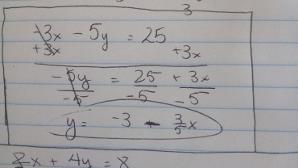 3
-3x - 5y = 25
+3x +3x
-5y = 25 + 3x
-5 -5 -5
y = -3 - 3/5x
2x + 4y = 8